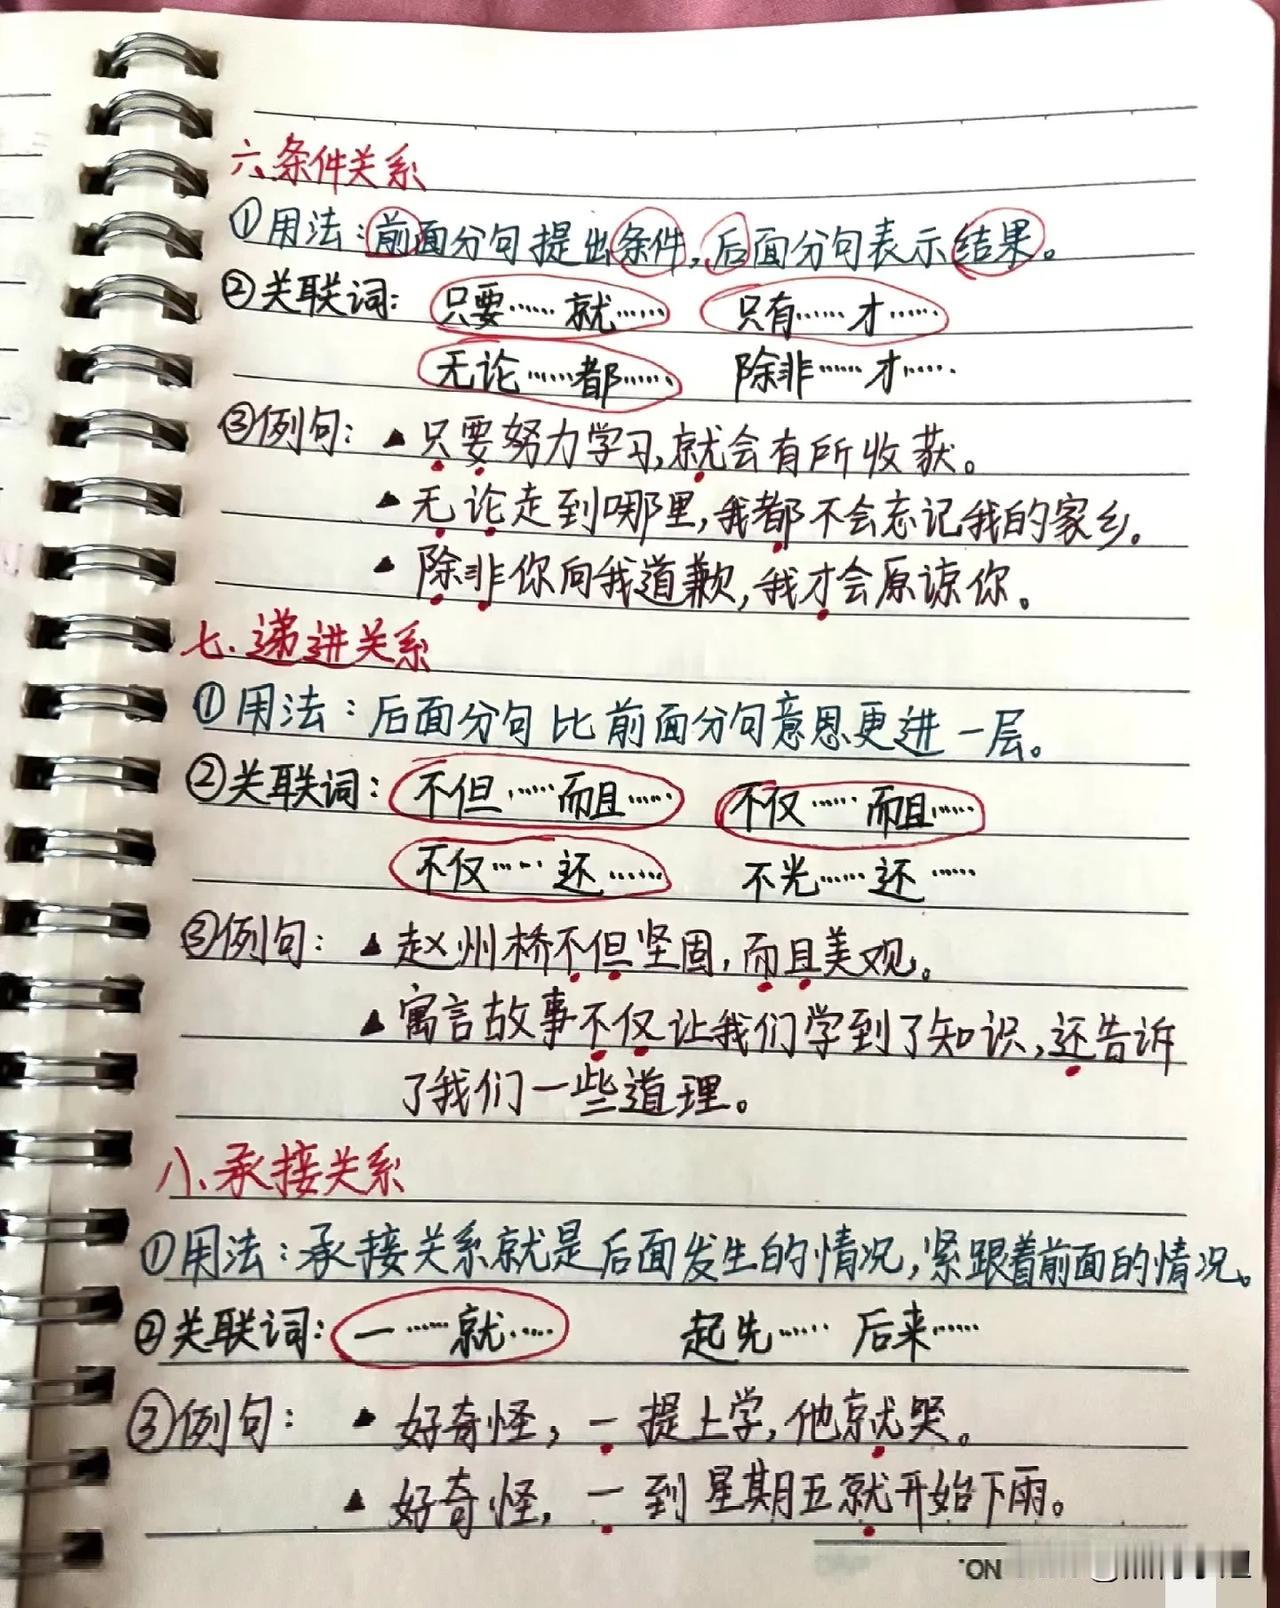 六、条件关系
①用法：前面分句提出条件，后面分句表示结果。
②关联词：只要……就…… 只有……才……
无论……都…… 除非……才……
③例句：▲只要努力学习，就会有所收获。
▲无论走到哪里，我都不会忘记我的家乡。
▲除非你向我道歉，我才会原谅你。
七、递进关系
①用法：后面分句比前面分句意思更进一层。
②关联词：不但……而且…… 不仅……而且……
不仅……还…… 不光……还……
③例句：▲赵州桥不但坚固，而且美观。
▲寓言故事不仅让我们学到了知识，还告诉
了我们一些道理。
八、承接关系
①用法：承接关系就是后面发生的情况，紧跟着前面的情况。
②关联词：一……就…… 起先……后来……
③例句：▲好奇怪，一提上学，他就哭。
▲好奇怪，一到星期五就开始下雨。
NO.